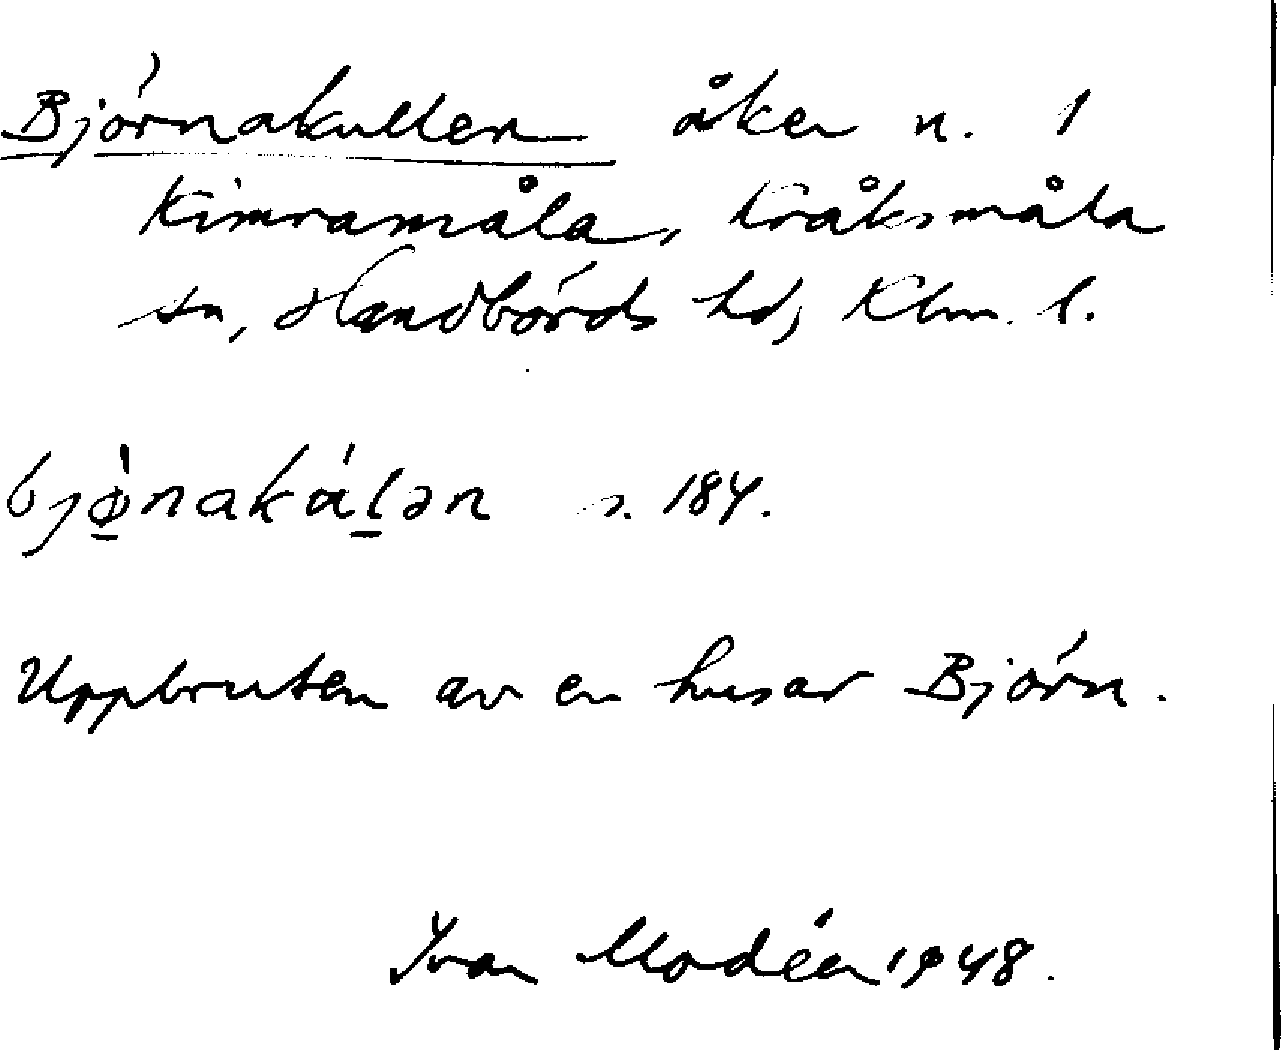 Björnakullen åker n. 1
Kimramåla, Kråksmåla
sn, Handbörds hd, Klm. l.
bjø̀nakálən s. 184.
Uppbruten av en husar Björn.
Ivar Modéer 1948.